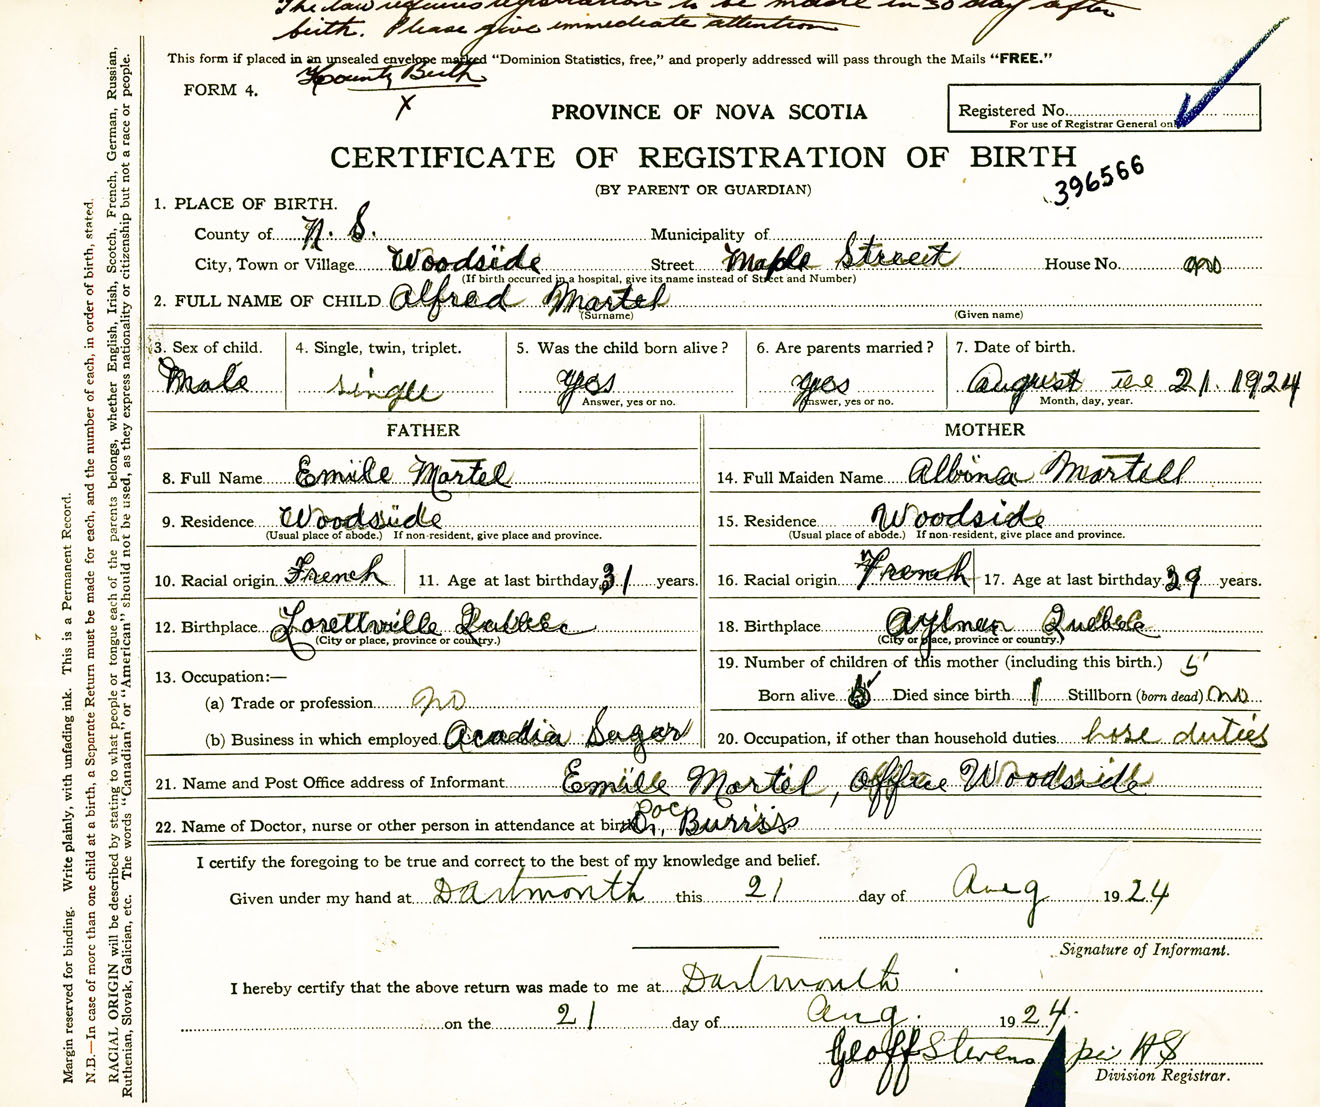 The law requires registration to be made in 30 day after
birth. Please give immediate attention
This form if placed in an unsealed envelope marked "Dominion Statistics, free," and properly addressed will pass through the Mails "FREE."
County Birth
FORM 4.
X
PROVINCE OF NOVA SCOTIA
Registered No.
For use of Registrar General only
CERTIFICATE OF REGISTRATION OF BIRTH
396566
(BY PARENT OR GUARDIAN)
1. PLACE OF BIRTH.
County of N. S. Municipality of
City, Town or Village Woodside Street Maple Street House No. no
(If birth occurred in a hospital, give its name instead of Street and Number)
2. FULL NAME OF CHILD Alfred Martel
(Surname) (Given name)
3. Sex of child. 4. Single, twin, triplet. 5. Was the child born alive? 6. Are parents married? 7. Date of birth.
Male single Yes yes August the 21. 1924
Answer, yes or no. Answer, yes or no. Month, day, year.
FATHER MOTHER
8. Full Name Emile Martel 14. Full Maiden Name Albina Martell
9. Residence Woodside 15. Residence Woodside
(Usual place of abode.) If non-resident, give place and province. (Usual place of abode.) If non-resident, give place and province.
10. Racial origin French 11. Age at last birthday 31 years. 16. Racial origin French 17. Age at last birthday 29 years.
12. Birthplace Lorettville Quebec 18. Birthplace Aylmer Quebec
(City or place, province or country.) (City or place, province or country.)
13. Occupation:— 19. Number of children of this mother (including this birth.) 5
(a) Trade or profession no Born alive 5 Died since birth 1 Stillborn (born dead) no
(b) Business in which employed Acadia Sugar 20. Occupation, if other than household duties hose duties
21. Name and Post Office address of Informant Emile Martel, office Woodside
Doc
22. Name of Doctor, nurse or other person in attendance at birth Dr. Burriss
I certify the foregoing to be true and correct to the best of my knowledge and belief.
Given under my hand at Dartmouth this 21 day of Aug 1924
Signature of Informant.
I hereby certify that the above return was made to me at Dartmouth
on the 21 day of Aug. 1924.
Geoff Stevens per HS
Division Registrar.
Margin reserved for binding. Write plainly, with unfading ink. This is a Permanent Record.
N.B.—In case of more than one child at a birth, a Separate Return must be made for each, and the number of each, in order of birth, stated.
RACIAL ORIGIN will be described by stating to what people or tongue each of the parents belongs, whether English, Irish, Scotch, French, German, Russian,
Ruthenian, Slovak, Galician, etc. The words "Canadian" or "American" should not be used, as they express nationality or citizenship but not a race or people.